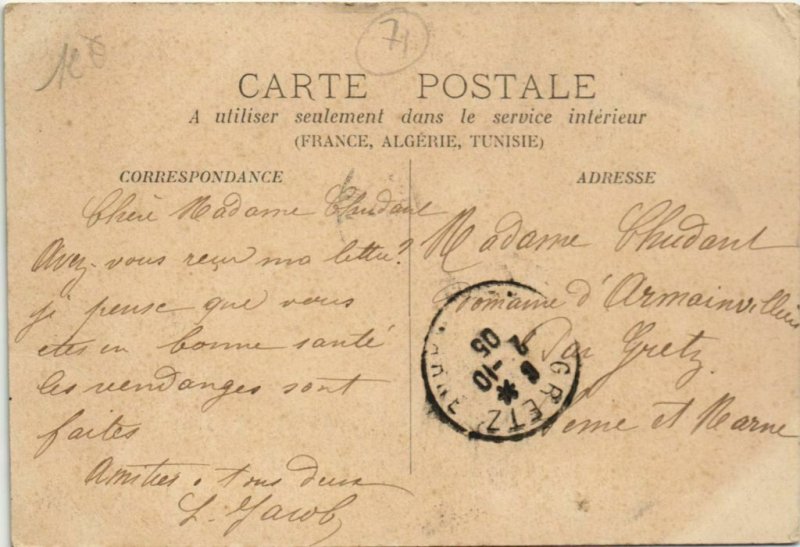 71
CARTE POSTALE
A utiliser seulement dans le service intérieur
(FRANCE, ALGÉRIE, TUNISIE)
CORRESPONDANCE
Chère Madame Chudant
Avez-vous reçu ma lettre?
je pense que vous
etes en bonne santé
les vendanges sont
faites
Amitiés à tous deux
L. Jacob
ADRESSE
Madame Chudant
Domaine d'Armainvilliers
Par Gretz
Seine et Marne
GRETZ
6-10
05